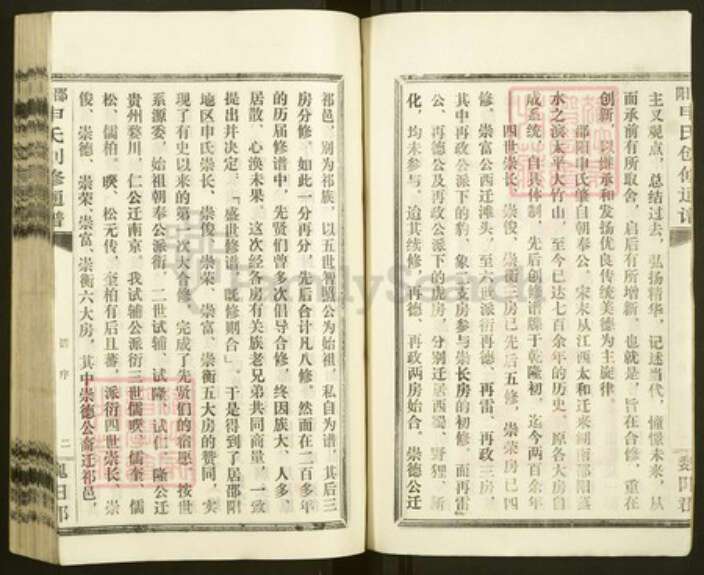 主义观点，总结过去，弘扬精华，记述当代，憧憬未来，从
而承前有所取舍，启后有所增新，也就是，旨在合修，重在
创新，以继承和发扬优良传统美德为主旋律。
邵阳申氏肇自朝奉公，宋末从江西太和迁来湖南邵阳
水之滨太平大竹山，至今已达七百余年的历史，原各大房自
成系统，自具体制，先后创修谱牒于乾隆初，迄今两百余年
四世崇长、崇俊、崇衡三房已先后五修，崇荣房已四
修，崇富公西迁滩头，至六世派衍再德、再雷、再政三房，
其中再政公派下的豹、象二支房参与崇长房的初修，而再雷
公、再德公及再政公派下的虎房，分别迁居西蜀、野狸、新
化，均未参与，迨其续修，再德、再政两房始合，崇德公迁
祁邑，别为祁族，以五世智盟公为始祖，私自为谱，其后三
房分修，如此一分再分，先后合计凡八修，然而在二百多年
的历届修谱中，先贤们曾多次倡导合修，终因族大、人多、
居散、心涣未果。这次经各房有关族老兄弟共同商量，一致
提出并决定，「盛世修谱，既修则合」，于是得到了居邵阳
地区申氏崇长、崇俊、崇荣、崇富、崇衡五大房的赞同，实
现了有史以来的第一次大合修，完成了先贤们的宿愿，按世
系源委，始祖朝奉公派衍，二世试辅、试隆、试仁，隆公迁
贵州婺川，仁公迁南京，我试辅公派衍三世儒暌、儒奎、儒
松、儒柏，暌、松元传，奎柏有后且蕃，派衍四世崇长、崇
俊、崇德、崇荣、崇富、崇衡六大房，其中崇德公裔迁祁邑，
申氏创修通谱
谱序
二